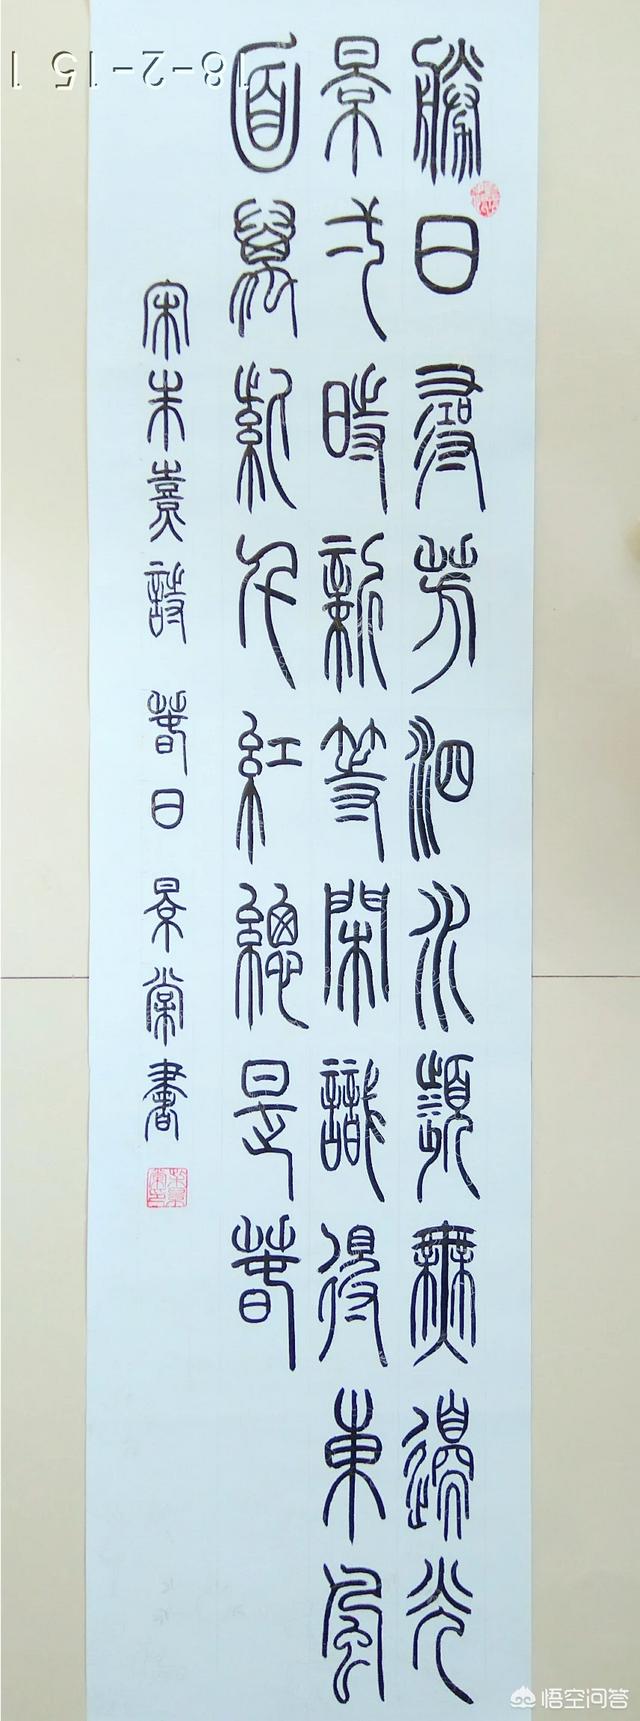 勝日尋芳泗水瀕無邊光
景弌時新等閑識得東風
面萬紫千紅總是春
宋朱熹詩 春日 景棠書
18-2-15 1
悟空问答